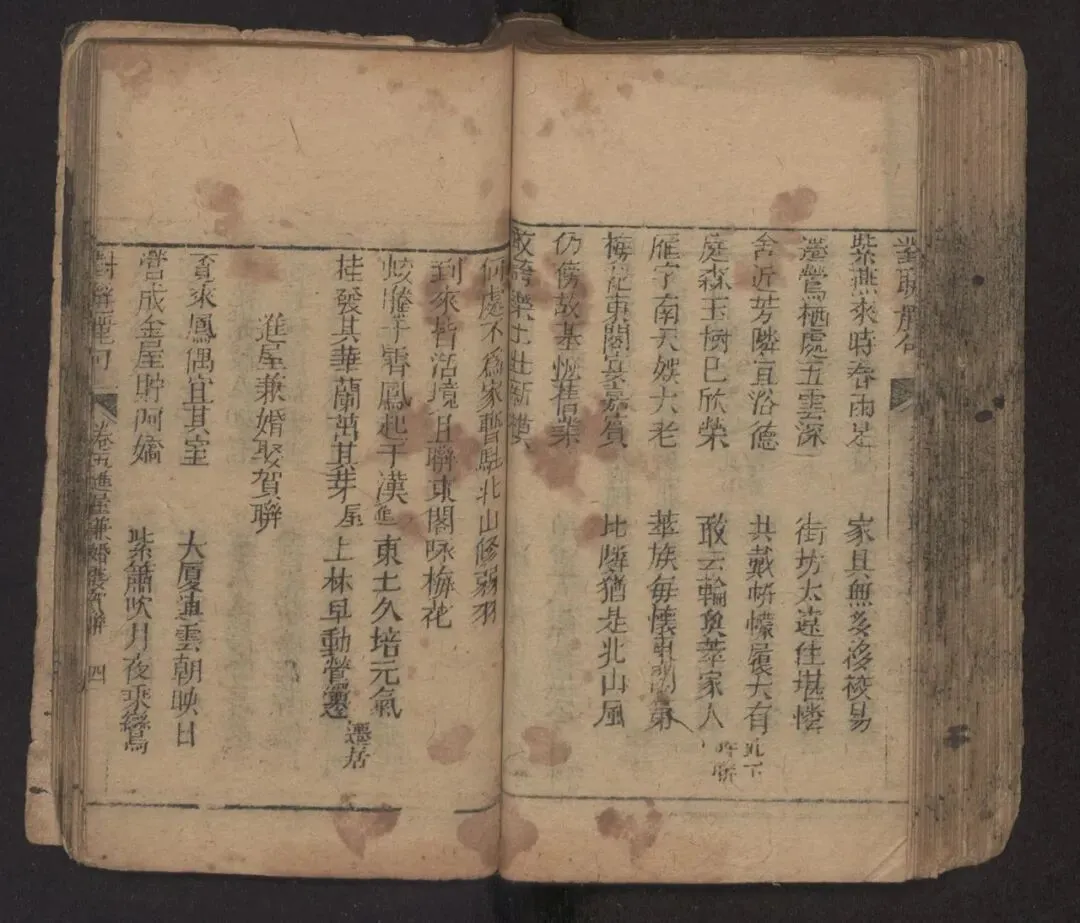 紫燕來時春雨足 家具無多移徙易
遷鶯栖處五雲深 街坊太遠住堪憐
舍近芳隣宜浴德 共戴帡幪履大有
庭森玉樹已欣榮 敢云輪奐萃家人
雁字南天娱大老 萃族每懷東閣
梅花東閣宴嘉賓 比隣猶是北山風
仍傍故基恢舊業
何處不爲家暫駐北山修羽
到來皆活境且聯東閣咏梅花
蛟騰于霄鳳起于漢進 東土久培元氣
桂發其華蘭茁其芽屋 上林早動鶯遷 遷居
進屋兼婚娶賀聯
來鳳偶宜其室 大厦連雲朝映日
營成金屋貯阿嬌 紫簫吹月夜乘鸞
卷五進屋兼婚娶賀聯 四